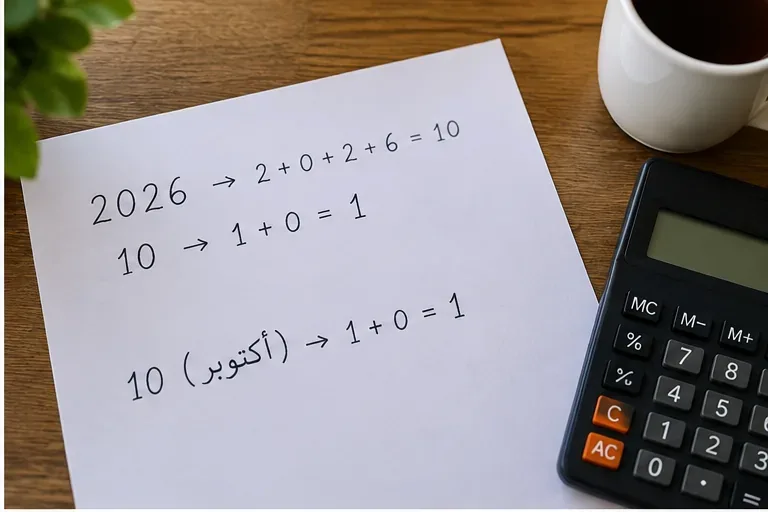 2026 → 2 + 0 + 2 + 6 = 10
10 → 1 + 0 = 1
10 (أكتوبر) → 1 + 0 = 1
MC M− M+
% 7 8
⁒ 4 5 6
C 1 2 3
AC 0 . =